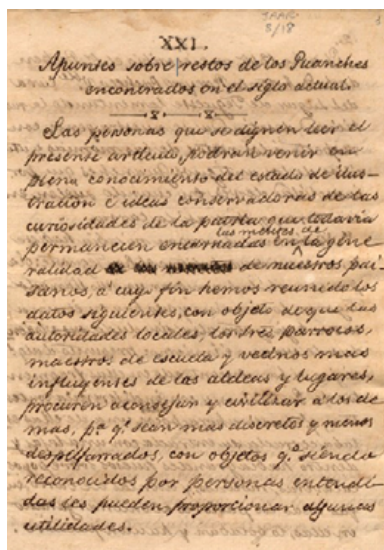 XXI.
Apuntes sobre restos de los Guanches
encontrados en el siglo actual.
Las personas que se dignen leer el
presente artículo, podrán venir en
pleno conocimiento del estado de ilus-
tración e ideas conservadoras de las
curiosidades de la patria que todavía
permanecen encarnadas en
las molleras de
la gene
ralidad de nuestros pai-
sanos, a cuyo fin hemos reunido los
datos siguientes, con objeto de que las
autoridades locales, los párrocos,
maestros de escuela y vecinos mas
influyentes de las aldeas y lugares,
procuren aconsejar y civilizar a los de
mas, pª qᵉ sean mas discretos y menos
despilfarrados, con objetos qᵉ siendo
reconocidos por personas entendi-
das les pueden proporcionar algunas
utilidades.